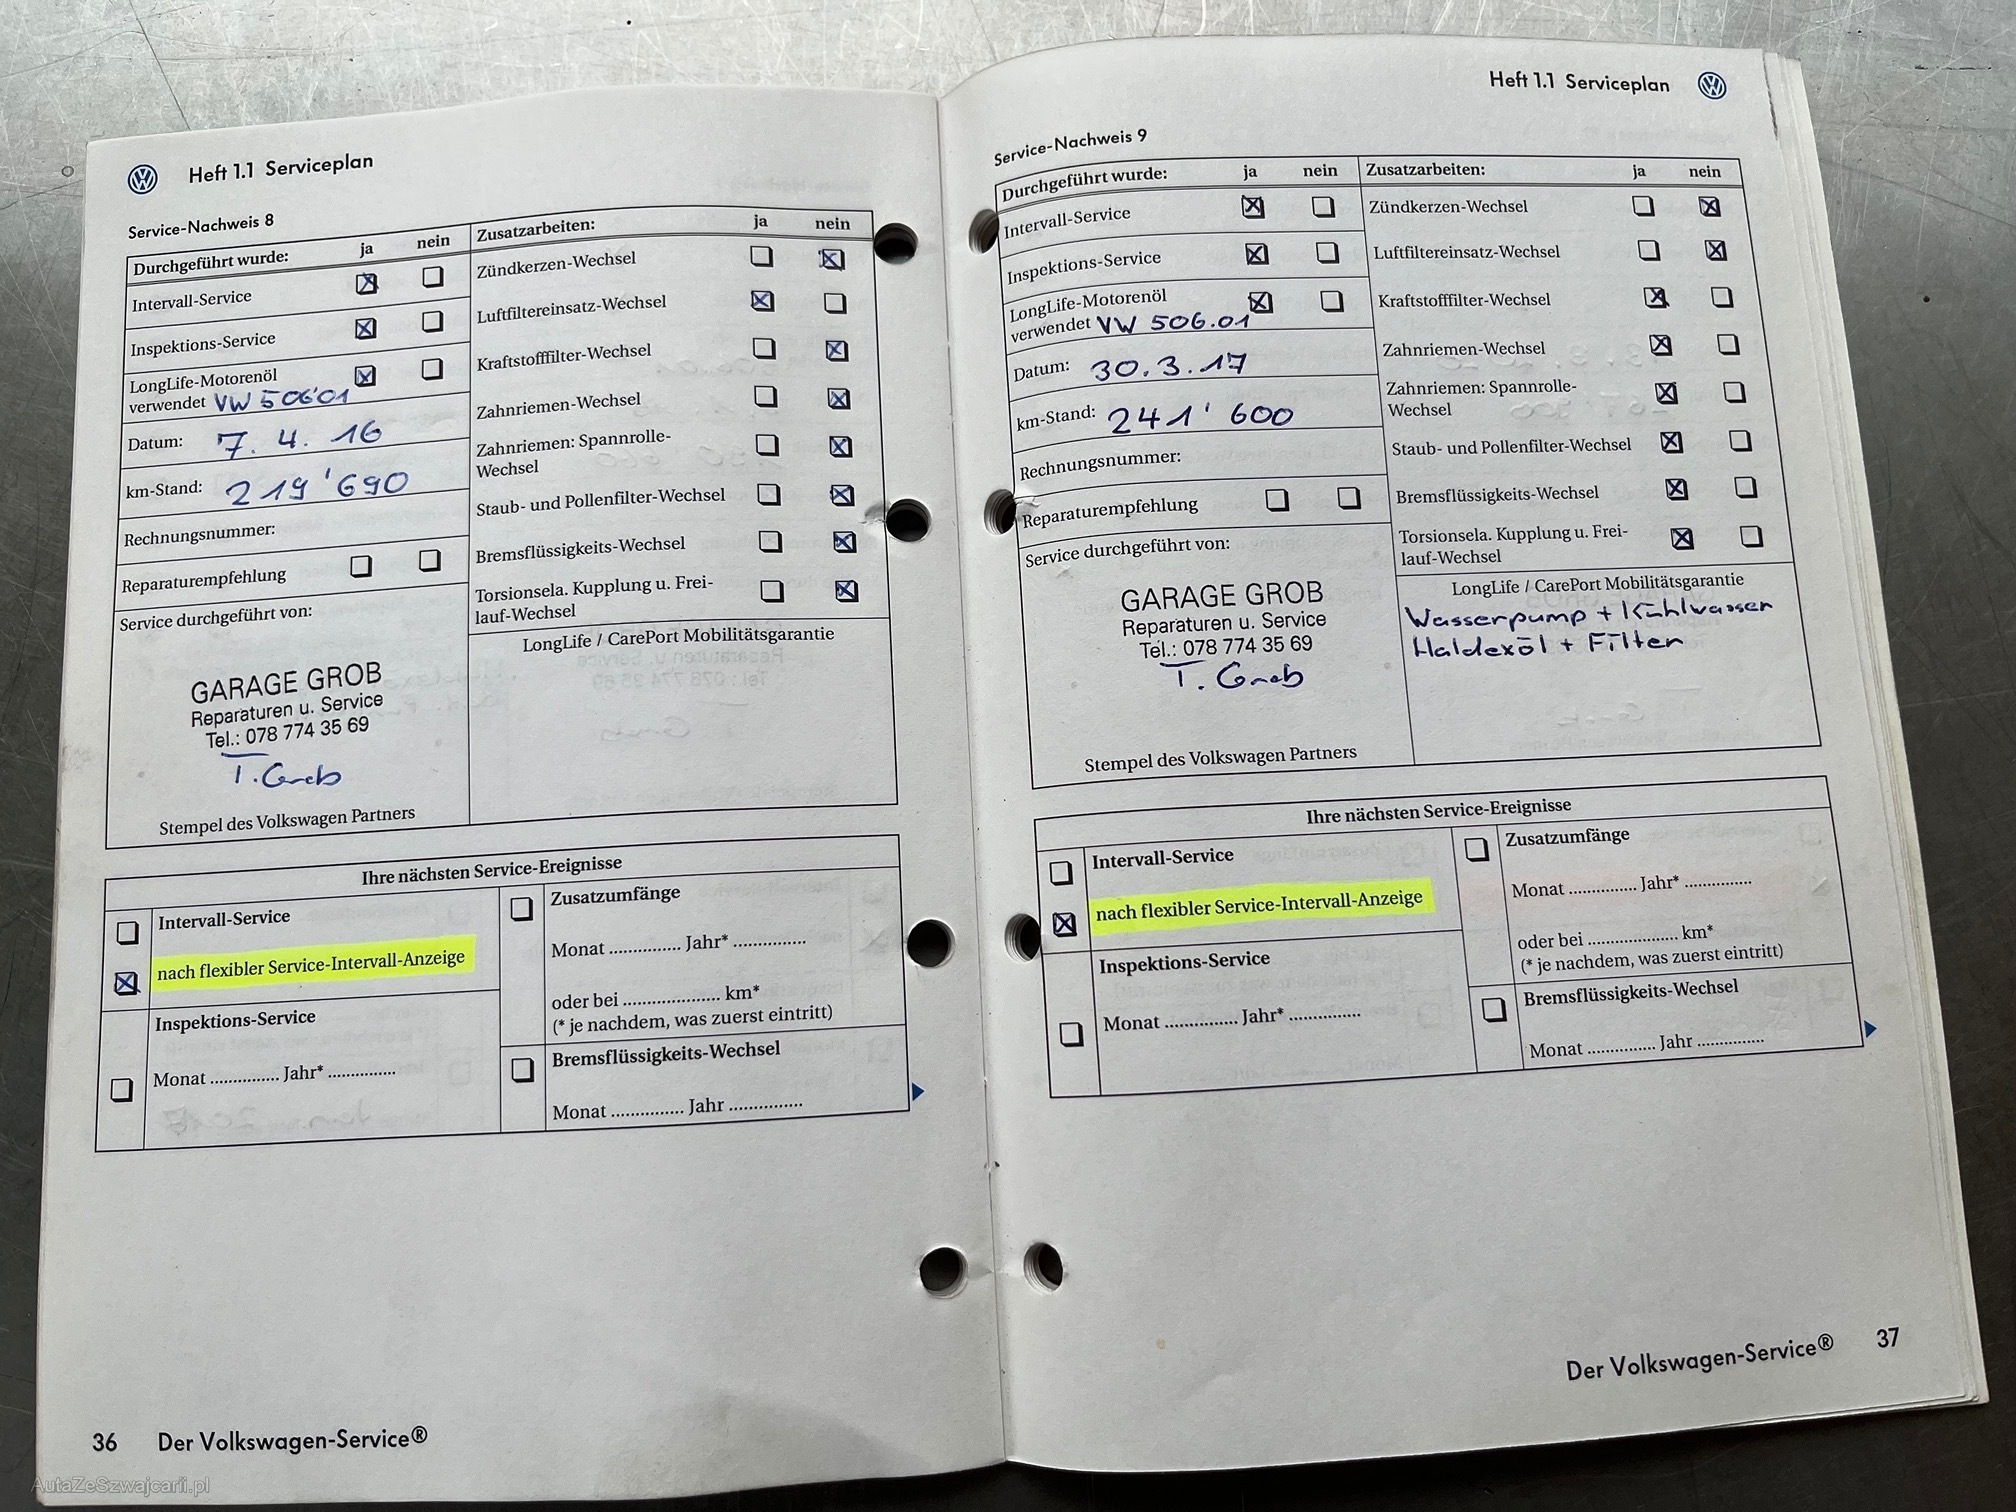 Heft 1.1 Serviceplan
Service-Nachweis 8
Durchgeführt wurde: ja nein
Intervall-Service
Inspektions-Service
LongLife-Motorenöl
verwendet VW 506'01
Datum: 7. 4. 16
km-Stand: 219'690
Rechnungsnummer:
Reparaturempfehlung
Service durchgeführt von:
GARAGE GROB
Reparaturen u. Service
Tel.: 078 774 35 69
T. Grob
Stempel des Volkswagen Partners
Zusatzarbeiten: ja nein
Zündkerzen-Wechsel
Luftfiltereinsatz-Wechsel
Kraftstofffilter-Wechsel
Zahnriemen-Wechsel
Zahnriemen: Spannrolle-
Wechsel
Staub- und Pollenfilter-Wechsel
Bremsflüssigkeits-Wechsel
Torsionsela. Kupplung u. Frei-
lauf-Wechsel
LongLife / CarePort Mobilitätsgarantie
Ihre nächsten Service-Ereignisse
Intervall-Service
nach flexibler Service-Intervall-Anzeige
Inspektions-Service
Monat ............... Jahr* ...............
Zusatzumfänge
Monat ............... Jahr* ...............
oder bei ..................... km*
(* je nachdem, was zuerst eintritt)
Bremsflüssigkeits-Wechsel
Monat ............... Jahr ...............
36 Der Volkswagen-Service®
Heft 1.1 Serviceplan
Service-Nachweis 9
Durchgeführt wurde: ja nein
Intervall-Service
Inspektions-Service
LongLife-Motorenöl
verwendet VW 506.01
Datum: 30.3.17
km-Stand: 241'600
Rechnungsnummer:
Reparaturempfehlung
Service durchgeführt von:
GARAGE GROB
Reparaturen u. Service
Tel.: 078 774 35 69
T. Grob
Stempel des Volkswagen Partners
Zusatzarbeiten: ja nein
Zündkerzen-Wechsel
Luftfiltereinsatz-Wechsel
Kraftstofffilter-Wechsel
Zahnriemen-Wechsel
Zahnriemen: Spannrolle-
Wechsel
Staub- und Pollenfilter-Wechsel
Bremsflüssigkeits-Wechsel
Torsionsela. Kupplung u. Frei-
lauf-Wechsel
LongLife / CarePort Mobilitätsgarantie
Wasserpump + Kühlwasser
Haldexöl + Filter
Ihre nächsten Service-Ereignisse
Intervall-Service
nach flexibler Service-Intervall-Anzeige
Inspektions-Service
Monat ............... Jahr* ...............
Zusatzumfänge
Monat ............... Jahr* ...............
oder bei .................... km*
(* je nachdem, was zuerst eintritt)
Bremsflüssigkeits-Wechsel
Monat ............... Jahr ...............
Der Volkswagen-Service® 37
AutaZeSzwajcarii.pl